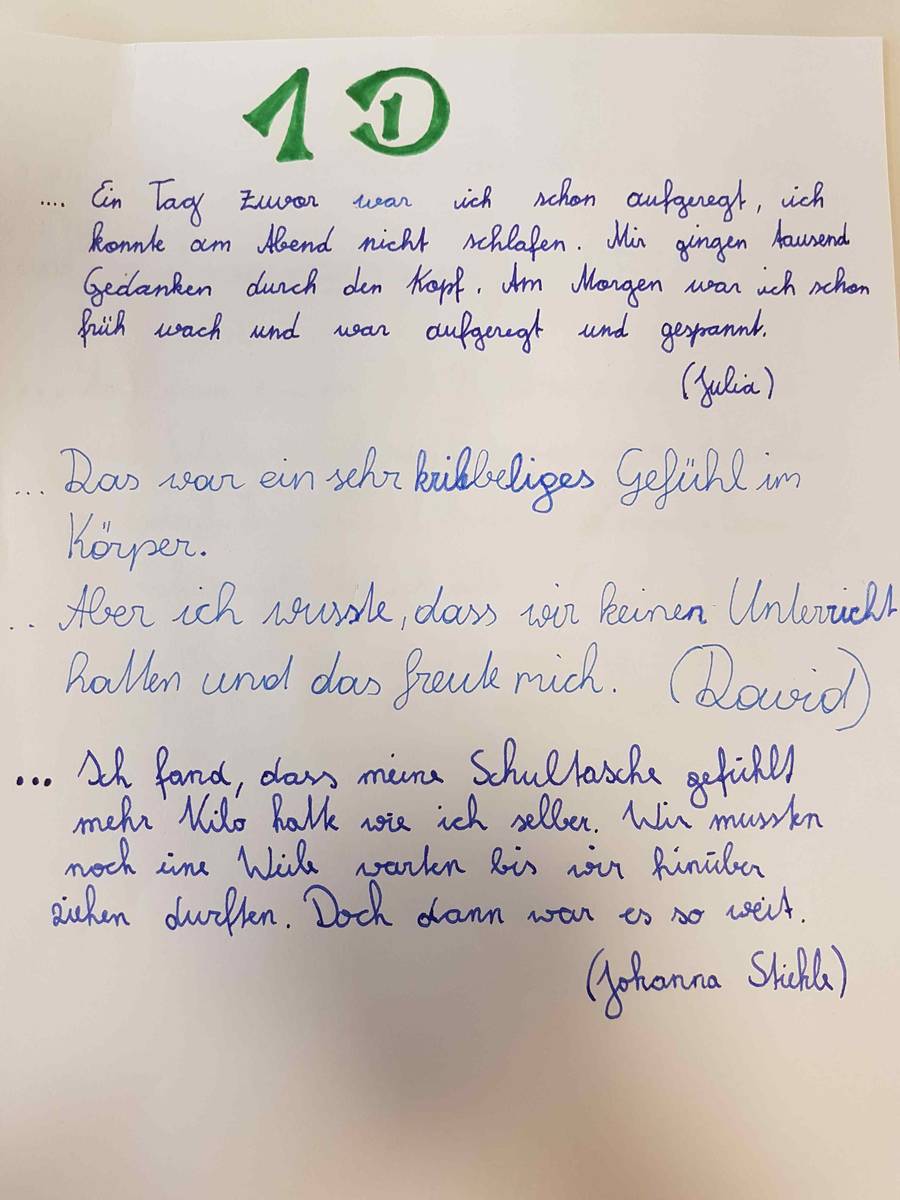 1D
1
.... Ein Tag zuvor war ich schon aufgeregt, ich
konnte am Abend nicht schlafen. Mir gingen tausend
Gedanken durch den Kopf. Am Morgen war ich schon
früh wach und war aufgeregt und gespannt.
(Julia)
... Das war ein sehr kribbeliges Gefühl im
Körper.
.. Aber ich wusste, dass wir keinen Unterricht
hatten und das freute mich. (David)
... Ich fand, dass meine Schultasche gefühlt
mehr Kilo hatte wie ich selber. Wir mussten
noch eine Weile warten bis wir hinüber
ziehen durften. Doch dann war es so weit.
(Johanna Stiehle)